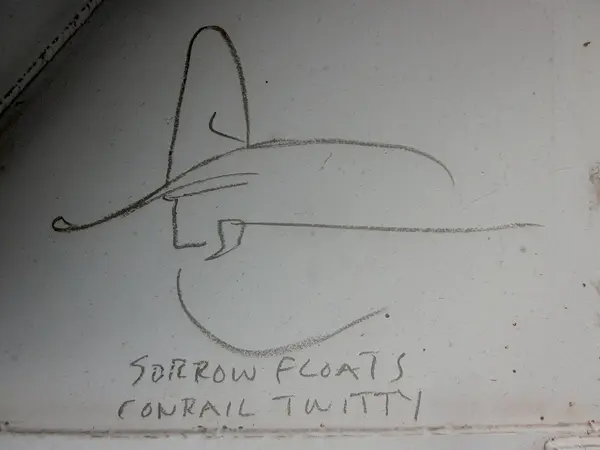 SORROW FLOATS
CONRAIL TWITTY